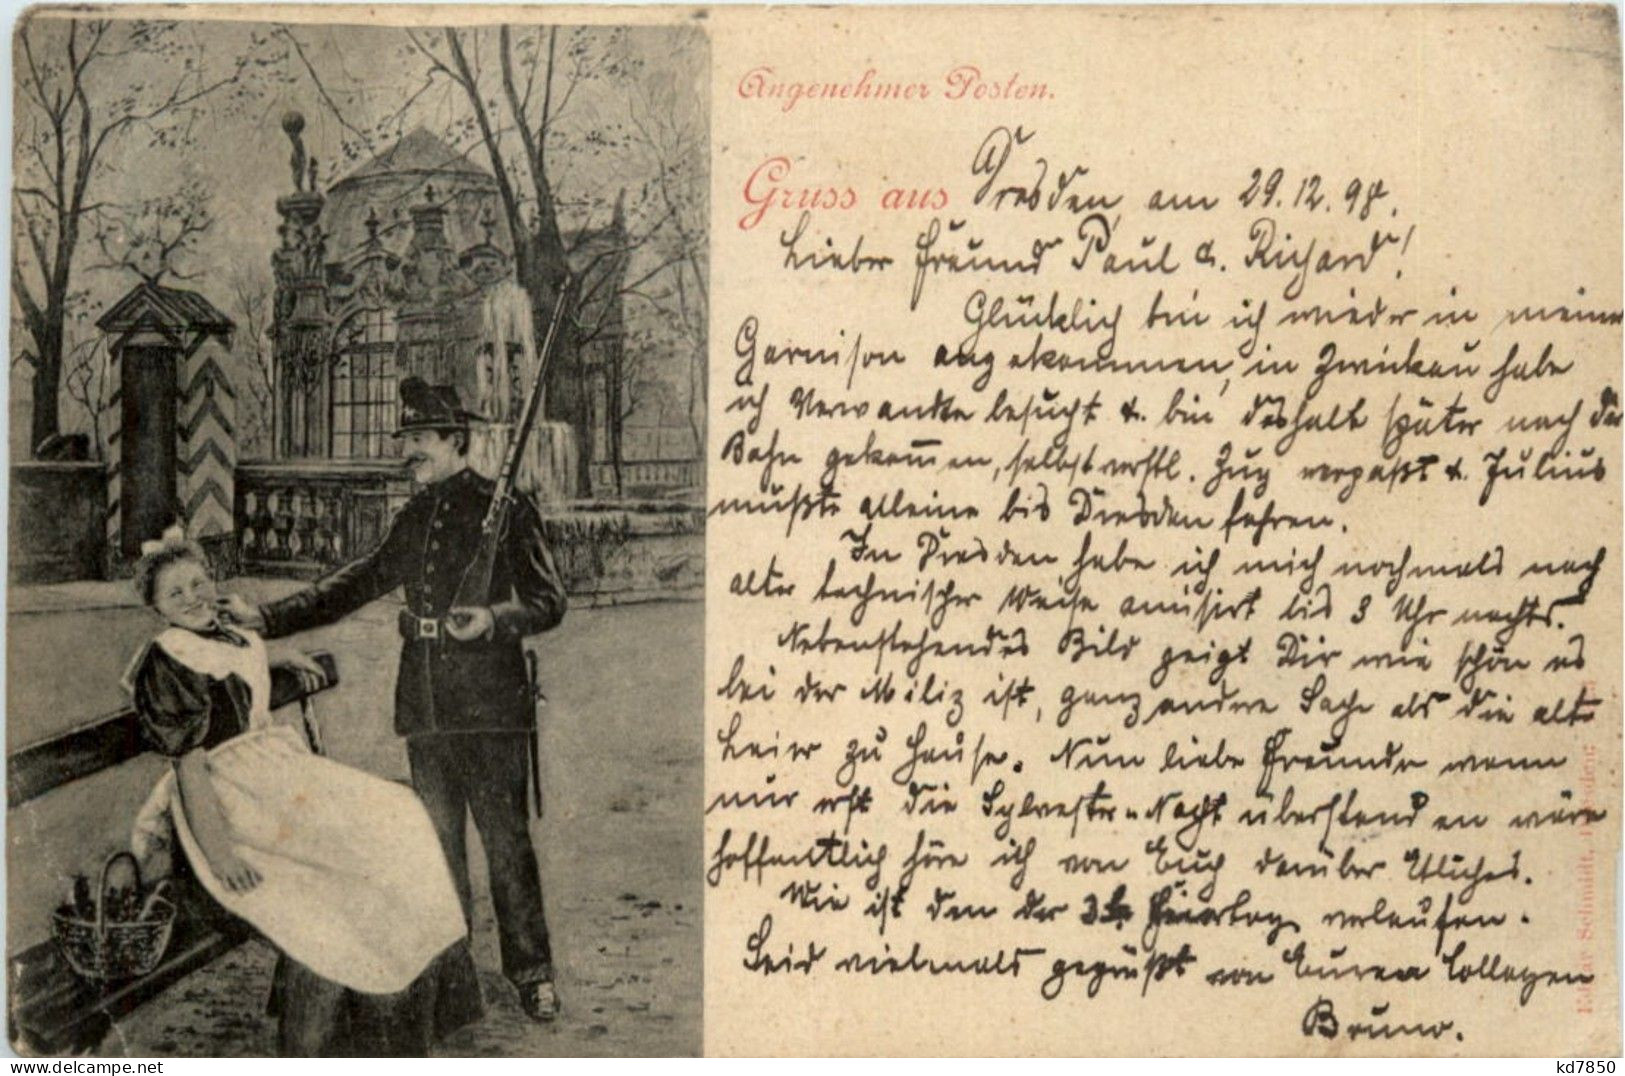 Angenehmer Posten.
Gruss aus Dresden, am 29.12.98.
Lieber Freund Paul & Richard!
Glücklich bin ich wieder in meiner
Garnison angekommen, in Zwickau habe
ich Verwandte besucht & bin deshalb später nach der
Bahn gekom̅en, selbstverstl. Zug verpaßt & Julius
mußte alleine bis Dresden fahren.
In Dresden habe ich mich nochmals nach
alter technischer Weise amüsirt bis 3 Uhr nachts.
Nebenstehendes Bild zeigt Dir wie schön es
bei der Miliz ist, ganz andere Sache als die alte
Leier zu Hause. Nun liebe Freunde wenn
nur erst die Sylvester-Nacht überstanden wäre
hoffentlich höre ich von Euch darüber Etliches.
Wie ist den der 3te Feiertag verlaufen.
Seid vielmals gegrüßt von Eurem Collegen
Bruno.
Schmidt,
kd7850